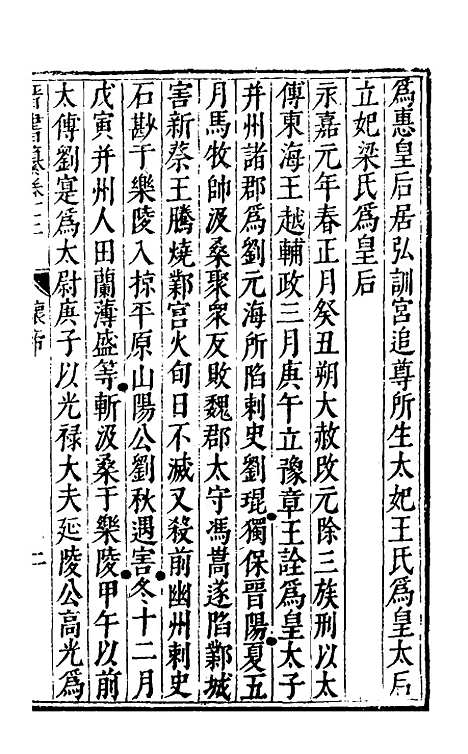 爲惠皇后居弘訓宮追尊所生太妃王氏爲皇太后
立妃梁氏爲皇后
永嘉元年春正月癸丑朔大赦改元除三族刑以太
傅東海王越輔政三月庚午立豫章王詮爲皇太子
并州諸郡爲劉元海所陷刺史劉琨獨保晉陽夏五
月馬牧帥汲桑聚衆反敗魏郡太守馮嵩遂陷鄴城
害新蔡王騰燒鄴宮火旬日不滅又殺前幽州刺史
石尠于樂陵入掠平原山陽公劉秋遇害冬十二月
戊寅并州人田蘭薄盛等斬汲桑于樂陵甲午以前
太傅劉寔爲太尉庚子以光祿大夫延陵公高光爲
晉書纂卷三 懷帝 二